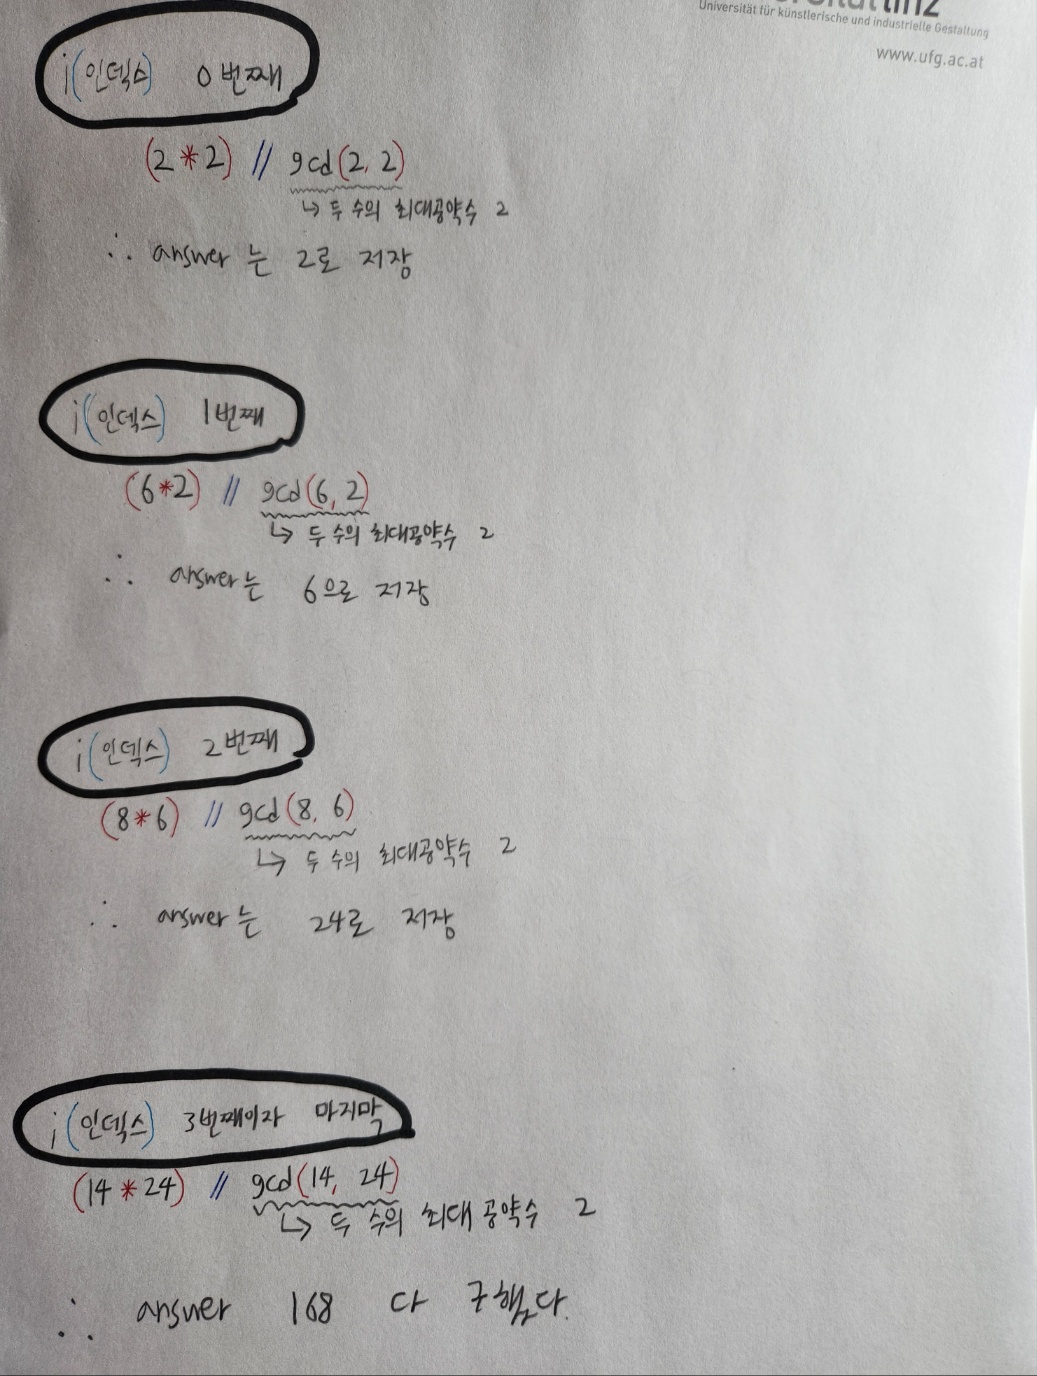 Universität für künstlerische und industrielle Gestaltung
www.ufg.ac.at
i(인덱스) 0번째
(2*2) // gcd(2, 2)
↳ 두 수의 최대공약수 2
∴ answer 는 2로 저장
i(인덱스) 1번째
(6*2) // gcd(6, 2)
↳ 두 수의 최대공약수 2
∴ answer는 6으로 저장
i(인덱스) 2번째
(8*6) // gcd(8, 6)
↳ 두 수의 최대공약수 2
∴ answer는 24로 저장
i(인덱스) 3번째이자 마지막
(14*24) // gcd(14, 24)
↳ 두 수의 최대공약수 2
∴ answer 168 다 구했다.